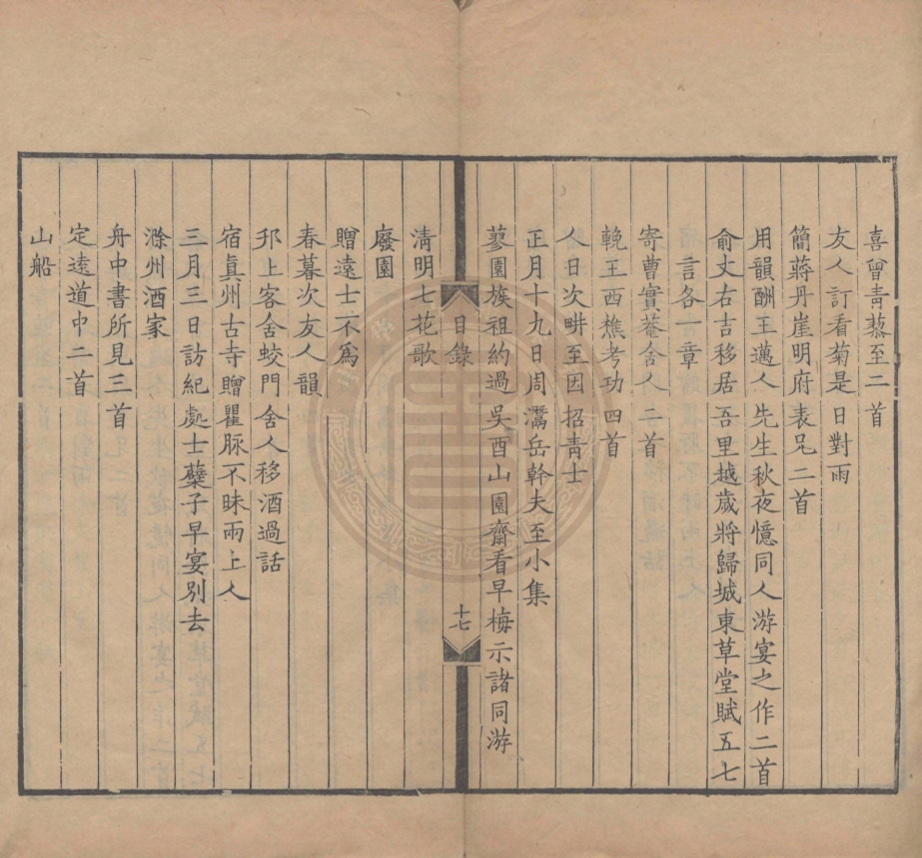 喜曾青藜至二首
友人訂看菊是日對雨
簡蔣丹崖明府表兄二首
用韻酬王邁人先生秋夜憶同人游宴之作二首
俞丈右吉移居吾里越歲將歸城東草堂賦五七
言各一章
寄曹實菴舍人二首
輓王西樵考功四首
人日次畊至因招青士
正月十九日周鷹岳幹夫至小集
蓼園族祖約過吳酉山園齋看早梅示諸同游
目錄
十七
清明七花歌
廢園
贈遠士不為
春暮次友人韻
邗上客舍蛟門舍人移酒過話
宿真州古寺贈瞿脉不昧兩上人
三月三日訪紀處士蘗子早宴別去
滁州酒家
舟中書所見三首
定遠道中二首
山船